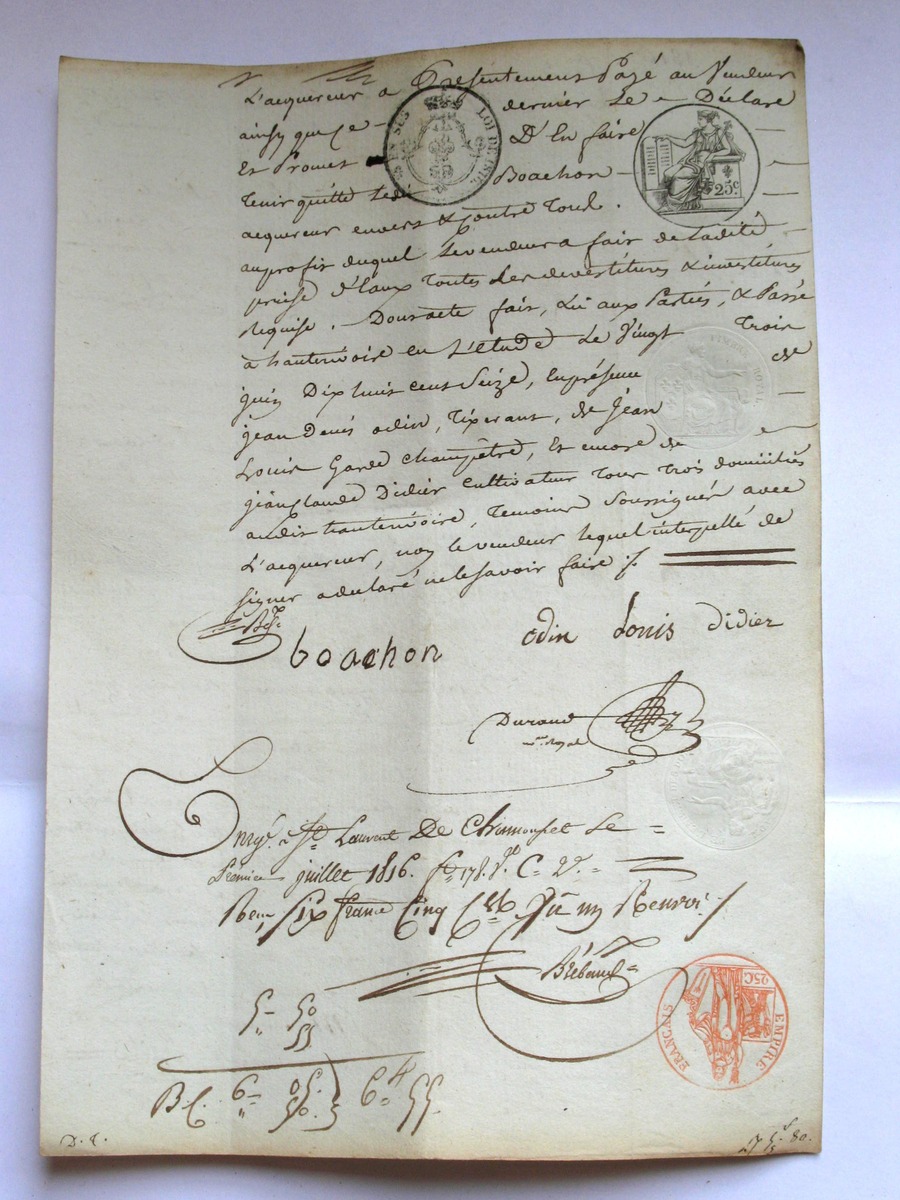 L'acquereur a Présentement Payé au Vendeur
ainsy que ce dernier Le Déclare
Et Promet D'En faire
Tenir quitte Ledit Boachon
acquereur envers & Contre Tous.
au profit duquel Le vendeur a fait de Ladite
prise d'Eaux Toutes Les devestitures & investitures
Requise. Dont acte fait, Lu aux Parties, & Passé
à hauterivoire en L'etude Le Vingt Trois
juin Dix huit cent Seize, En présence de
jean Denis odin, Tixerant, de Jean
Louis Garde champêtre, Et encore de
jean claude Didier Cultivateur Tous Trois domiciliés
audit hauterivoire, Temoins Soussignés avec
L'acquereur, non le vendeur lequel interpellé de
signer a déclaré ne le savoir faire ·/·
boachon odin Louis didier
Durand
nre. Royal
Enregé. à St. Laurent De Chamousset Le
Premier juillet 1816. fo. 178. Vo. C. 2e.
Reçu Six francs Cinq
Brébant
5 50
55
6 05
50
6 55
D. T.
EN SUS
LOI DE 1816
25c.
EMPIRE
FRANCAIS
25C